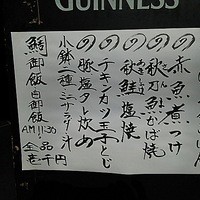 GUINNESS
の赤魚煮つけ
の秋刀魚かば焼
の秋鮭塩焼
のチキンカツ玉子とじ
の豚塩タレ炒め
小鉢二種 ミニサラダ 汁
鯛御飯 白御飯
AM11:30 全品壱千円